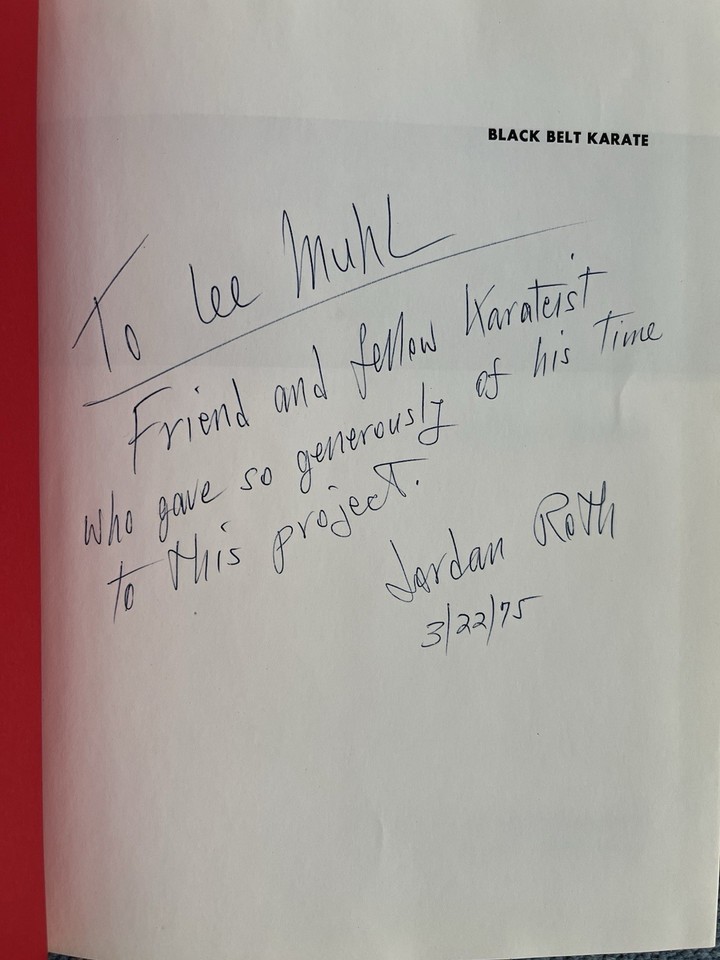 BLACK BELT KARATE
To Lee Muhl
Friend and fellow Karateist
who gave so generously of his time
to this project.
Jordan Roth
3/22/75